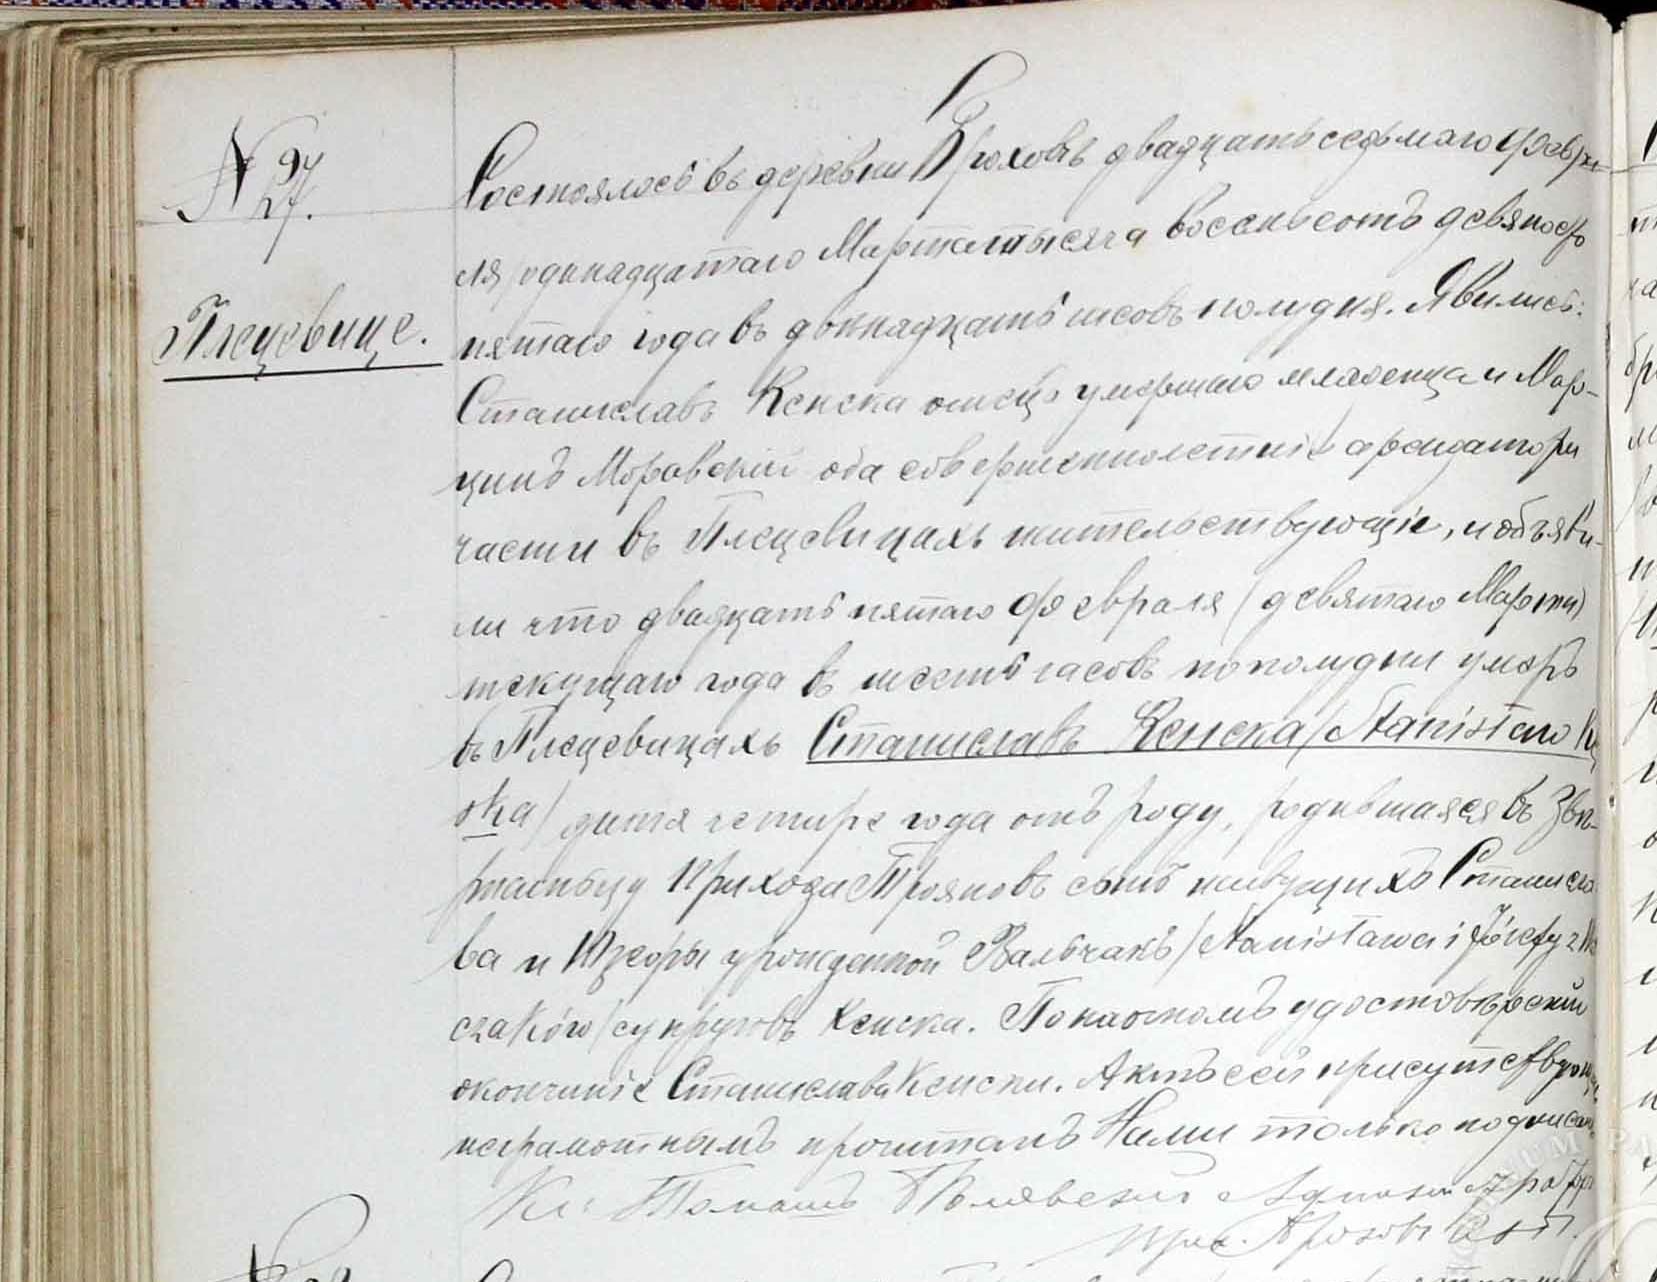 № 97
27.
Плецевице.
Состоялось въ деревни Броховъ двадцать седьмаго Февра-
ля/одинадцатаго Марта тысяча восемьсотъ девяносто
пятаго года въ двенадцать часовъ полудня. Явились:
Станиславъ Кенска отецъ умершаго младенца и Мар-
цинъ Моравскій оба совершеннолетніе арендатори
части въ Плецевицахъ жительствующіе, и объяви-
ли что двадцать пятаго Февраля (девятаго Марта)
текущаго года въ шесть часовъ пополудни умеръ
въ Плецевицахъ Станиславъ Кенска/Stanisław Kę
ska/ дитя четире года отъ роду, родившаяся въ
Прихода Трояновъ сынъ живущихъ Станисла
ва и Юзефы урожденной Вальчакъ/Stanisława i Józefy z
czaków/супруговъ Кенска. По настномъ удостовѣреніи
окончиніе Станислава Кенски. Актъ сей присутствующ
неграмотнымъ прочитанъ Нами только подписанъ
Кс: Томашъ
Прих. Броховъ
№